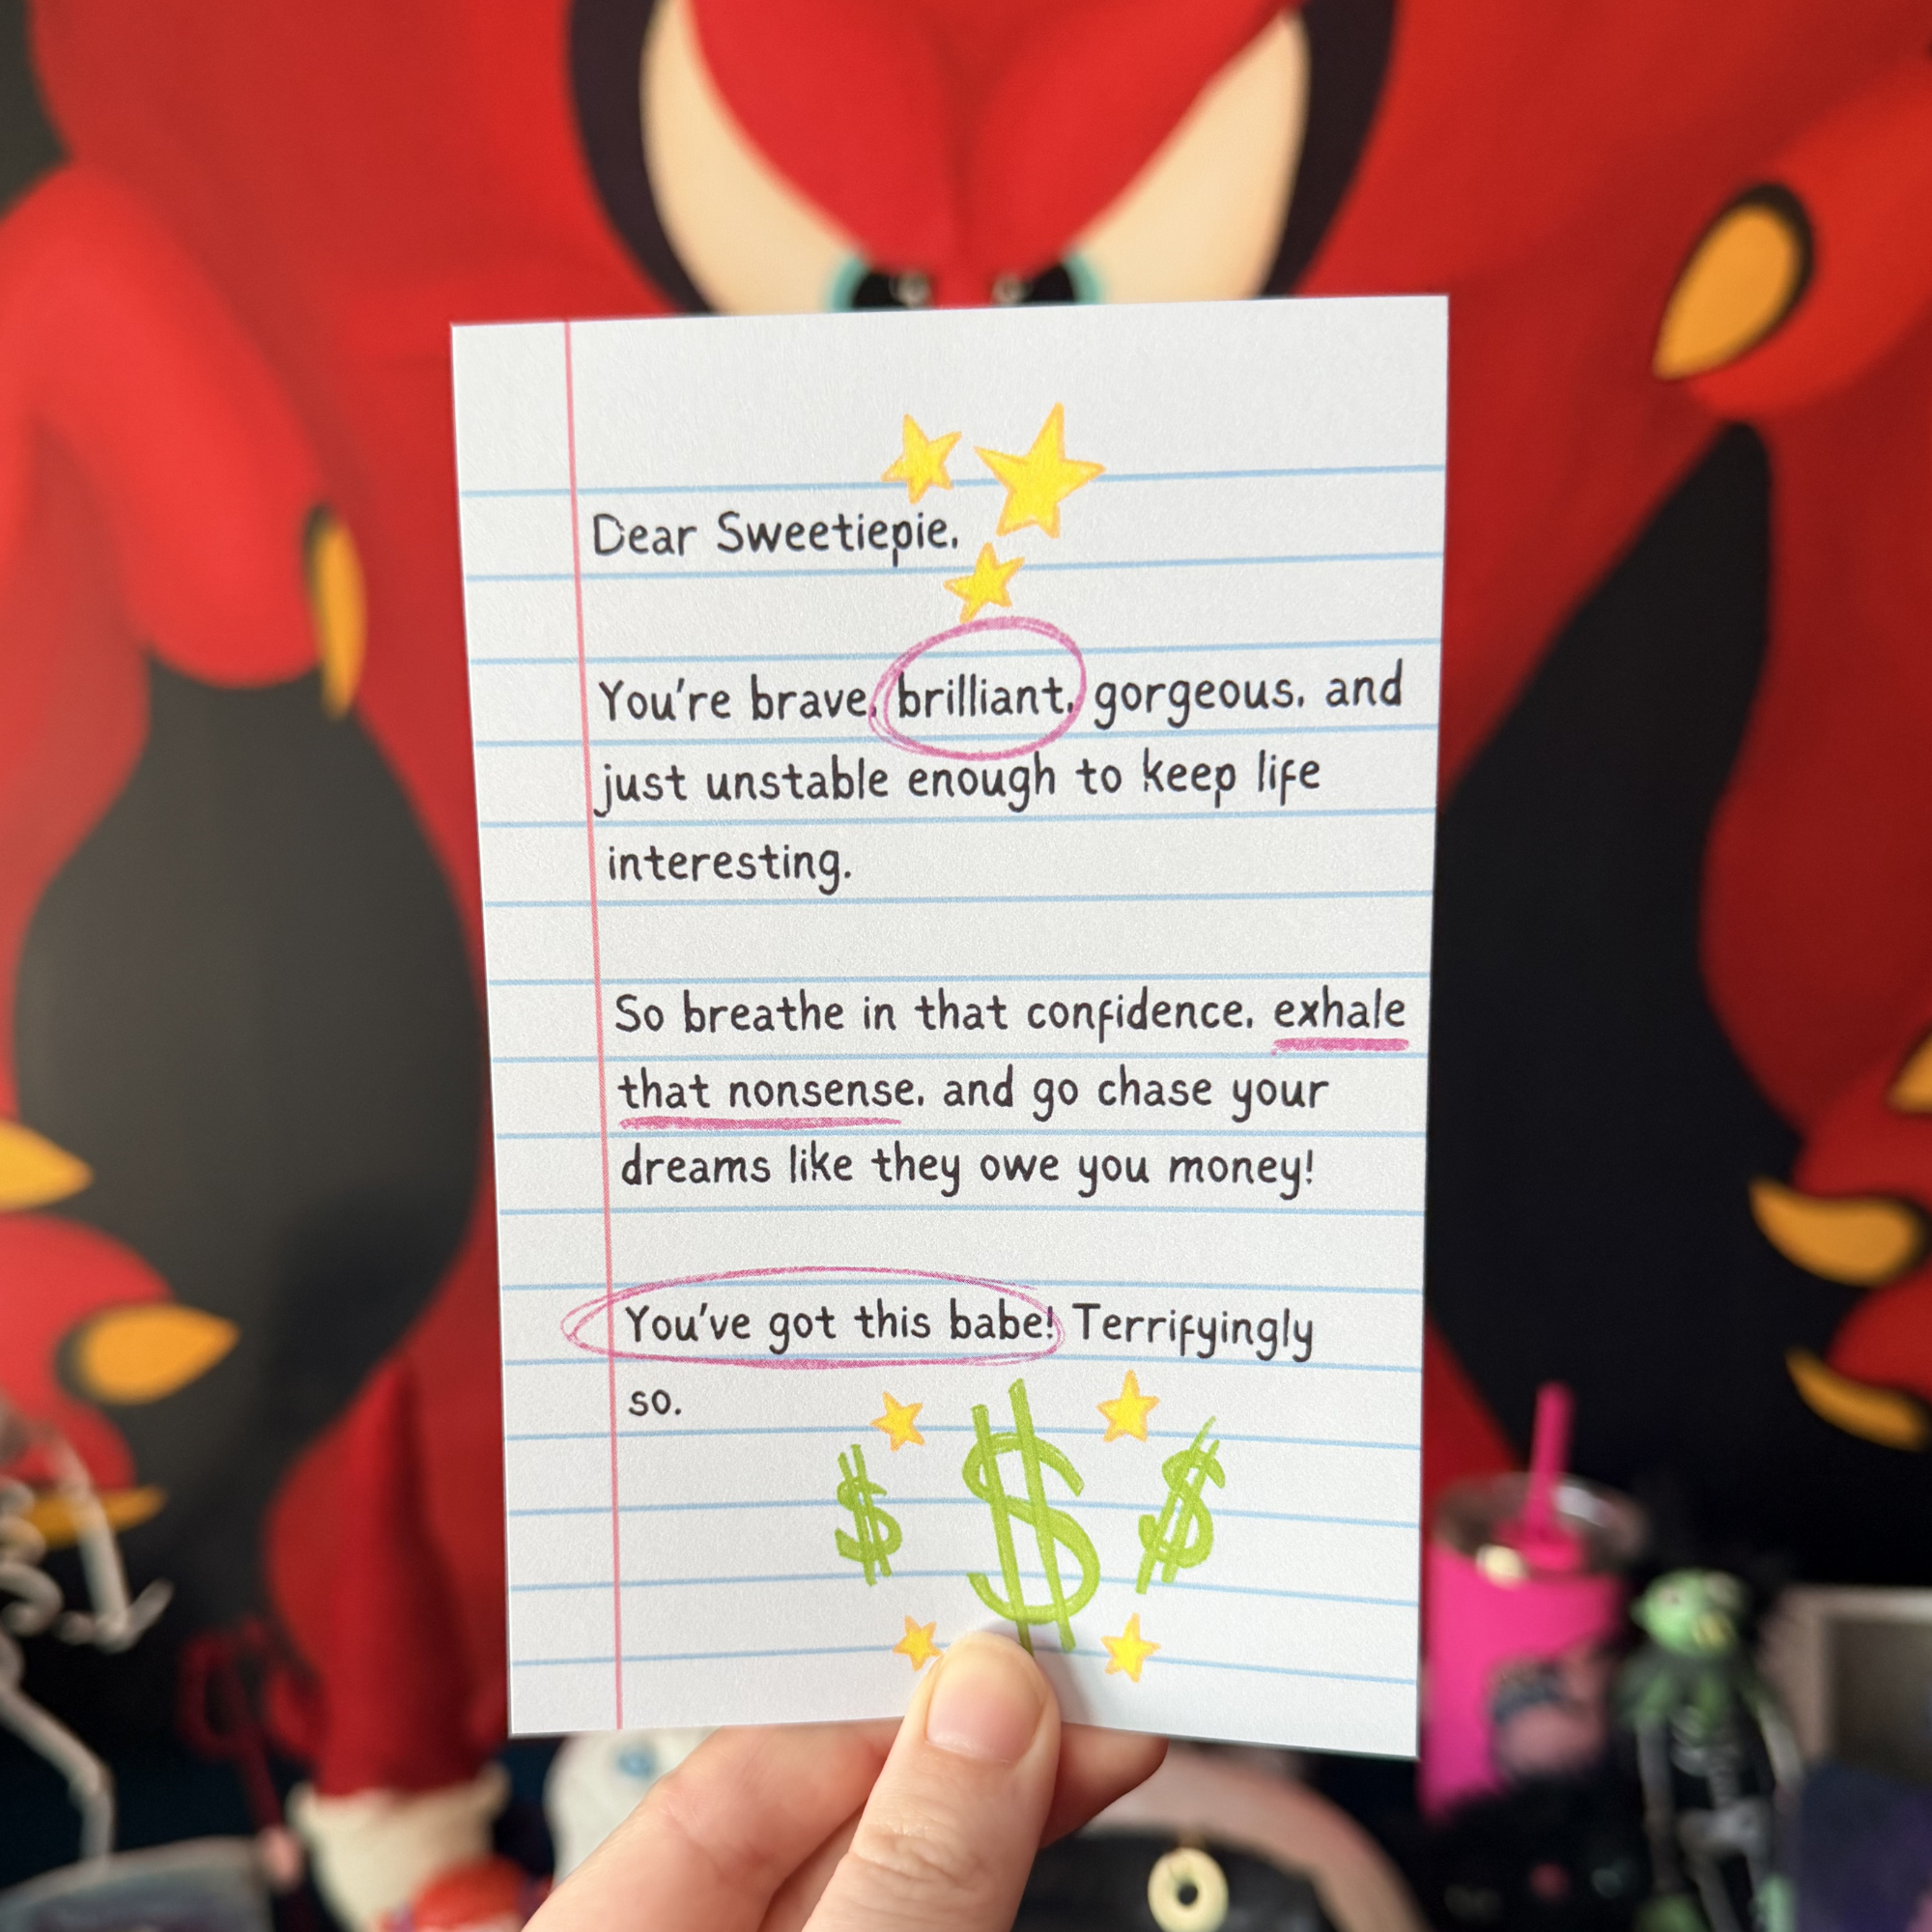 Dear Sweetiepie,
You're brave, brilliant, gorgeous, and
just unstable enough to keep life
interesting.
So breathe in that confidence, exhale
that nonsense, and go chase your
dreams like they owe you money!
You've got this babe! Terrifyingly
so.
$ $ $